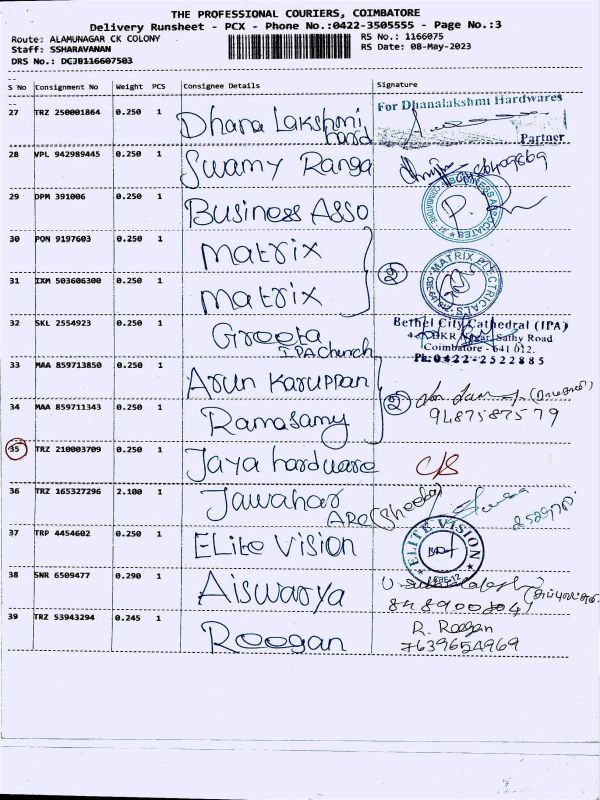 THE PROFESSIONAL COURIERS, COIMBATORE
Delivery Runsheet - PCX - Phone No.:0422-3505555 - Page No.:3
Route: ALAMUNAGAR CK COLONY
Staff: SSHARAVANAN
DRS No.: DCJB116607503
RS No.: 1166075
RS Date: 08-May-2023
S No Consignment No Weight PCS Consignee Details Signature
27 TRZ 250001864 0.250 1 Dhana Lakshmi
hard
For Dhanalakshmi Hardwares
Partner
28 VPL 942989445 0.250 1 Swamy Ranga
29 DPM 391006 0.250 1 Business Asso
BUSINESS ASSOCIATES
30 PON 9197603 0.250 1 matrix
31 IXM 503606300 0.250 1 matrix
2
MATRIX ELECTRICALS
32 SKL 2554923 0.250 1 Greeta
IPA Church
Bethel City Cathedral (IPA)
Sathy Road
Coimbatore - 641 012.
Ph:0422-2522885
33 MAA 859713850 0.250 1 Arun Karuppan
34 MAA 859711343 0.250 1 Ramasamy
2
9487587579
35 TRZ 210003709 0.250 1 Jaya hardware C/S
36 TRZ 165327296 2.100 1 Jawahar
ARC (Sheeba)
37 TRP 4454602 0.250 1 ELite Vision
ELITE VISION
CBE-12
38 SNR 6509477 0.290 1 Aiswarya
39 TRZ 53943294 0.245 1 Roogan
R. Roogan
7639654969